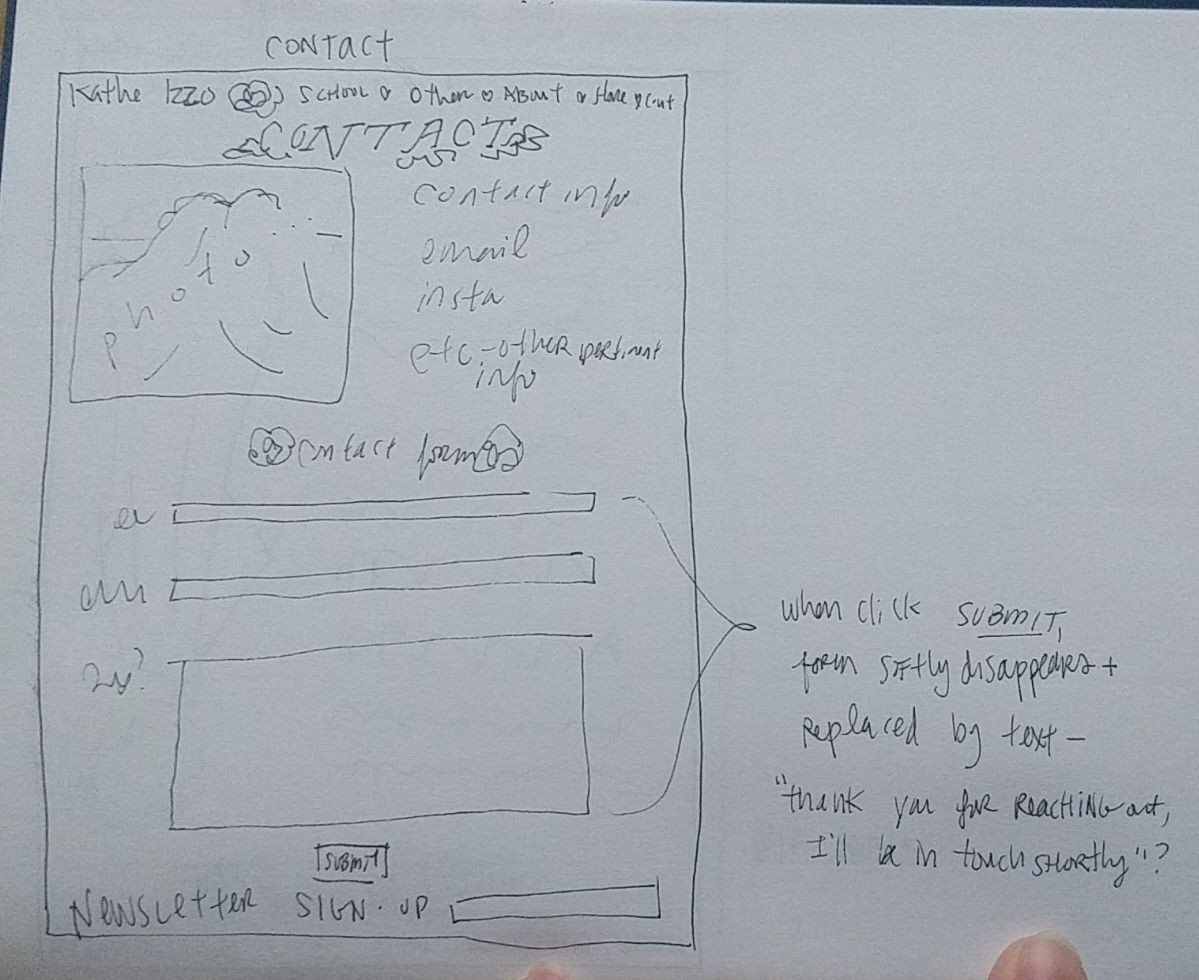 CONTACT
Kathe Izzo SCHOOL Other ABOUT store
CONTACT
contact info
email
insta
etc - other pertinent
info
Photo
contact form
when click SUBMIT,
form softly disappears +
replaced by text -
"thank you for REACHING out,
I'll be in touch shortly"?
SUBMIT
NEWSLETTER SIGN-UP